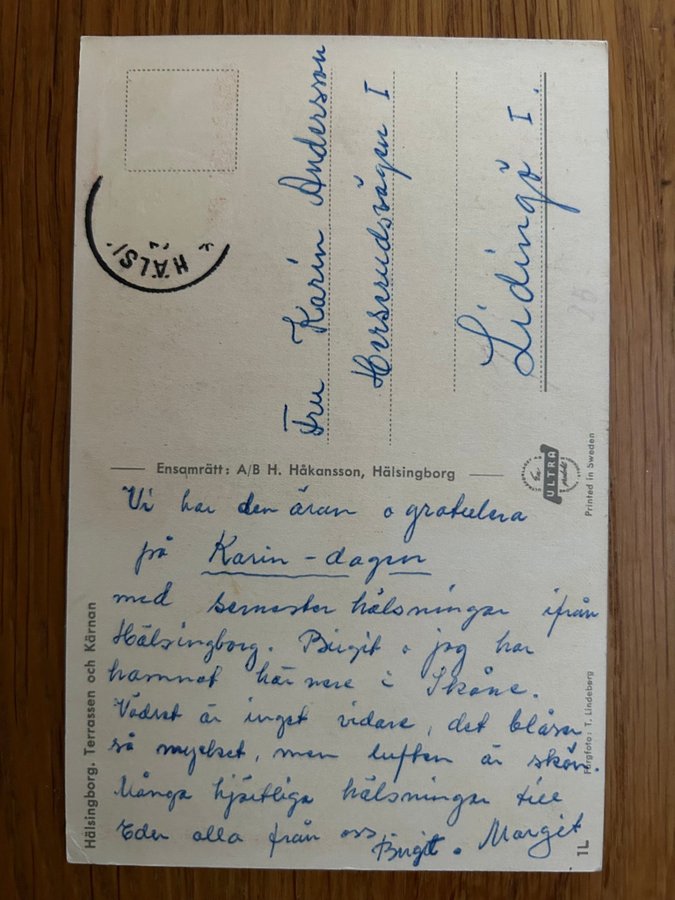 Vi har den äran o gratulera
på Karin-dagen
med semesterhälsningar ifrån
Hälsingborg. Birgit o jag har
hamnat här nere i Skåne.
Vädret är inget vidare, det blåser
så mycket, men luften är skön.
Många hjärtliga hälsningar till
Eder alla från oss
Birgit o Margit
Fru Karin Andersson
Herserudsvägen 1
Lidingö 1.
Ensamrätt: A/B H. Håkansson, Hälsingborg
ULTRA
Printed in Sweden
Hälsingborg. Terrassen och Kärnan
Färgfoto: T. Lindeberg
1L
HÄLSI